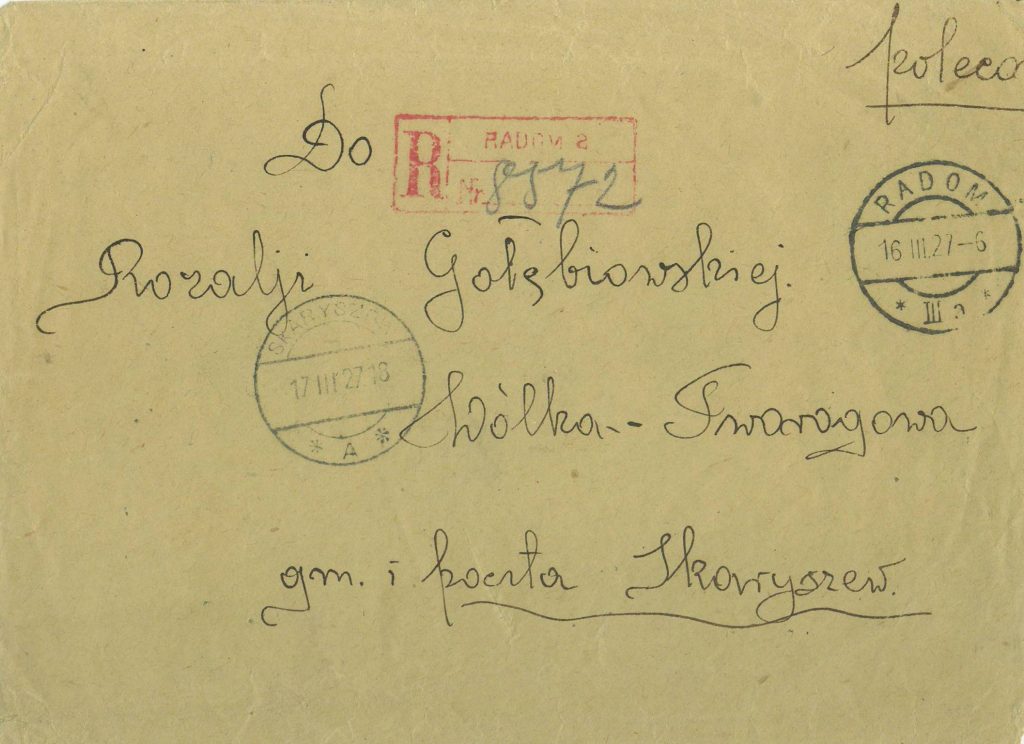 poleco
Do
R RADOM 2
Nr. 8572
RADOM
16 III.27-6
* III a *
Rozalji Gołębiowskiej.
SKARYSZEW
17 III 27 18
* A *
Wólka-Twarogowa
gm. i poczta Skaryszew.